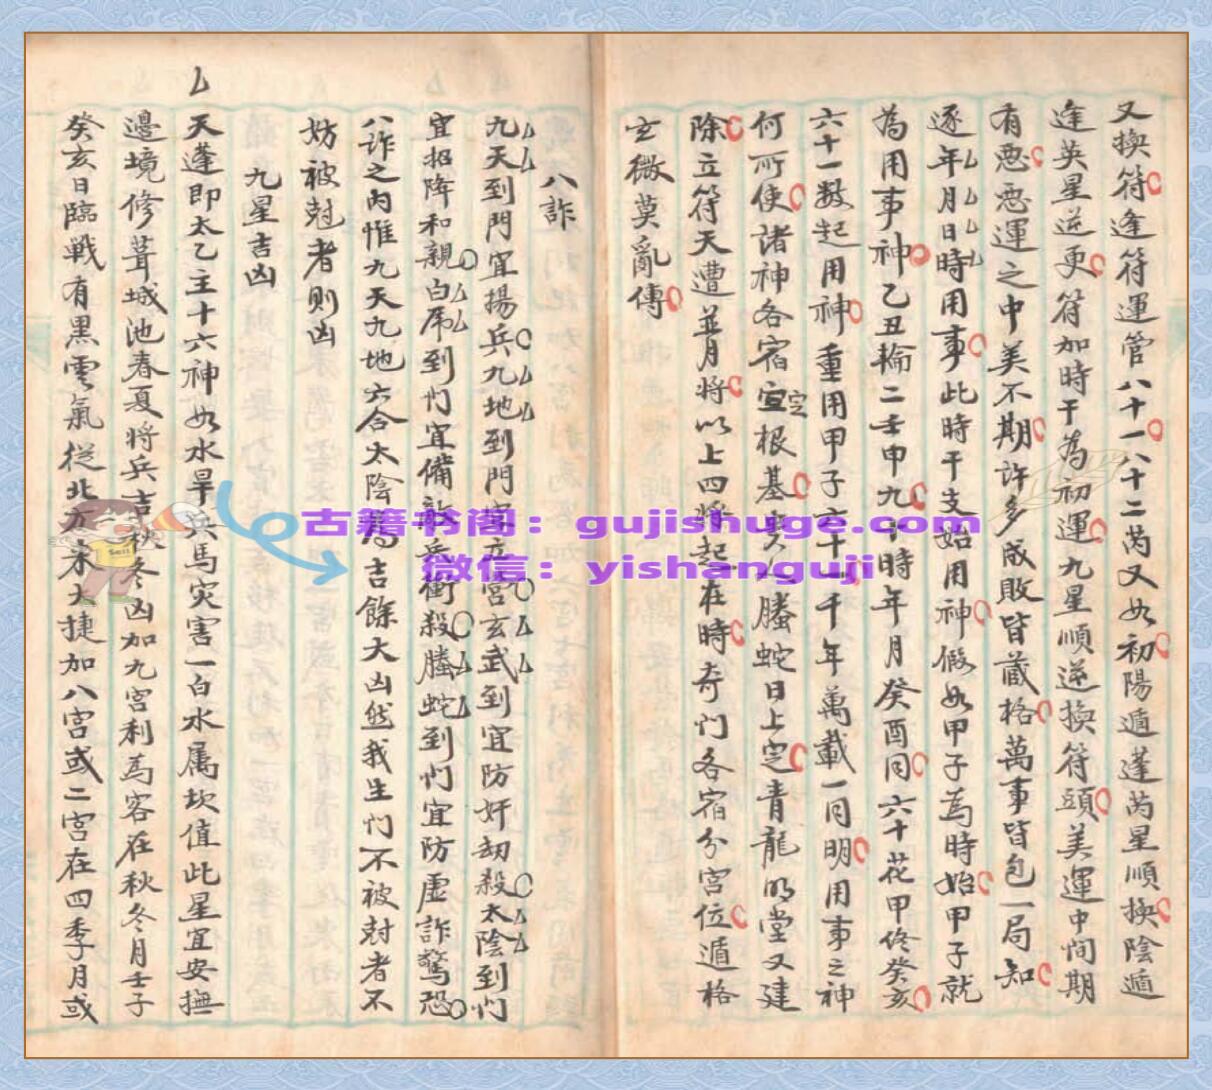 又換符逢符運管八十一八十二芮又如初陽遁蓬芮星順換陰遁
逢英星逆更符加時干為初運九星順逆換符頭美運中间期
有惡惡運之中美不期許多成敗皆蔵格萬事皆包一局知
逐年月日時用事此時干支始用神假如甲子為時始甲子就
為用事神乙丑輪二壬申九计時年月癸酉同六十花甲佟癸亥
六十一数起用神重用甲子六十一千年萬載一同明用事之神
何所使诸神各宿宣定根基 螣蛇日上定青龍明堂又建
除立符天遭並月將以上四將起在時奇门各宿分宮位遁格
玄微莫亂傳
八詐
九天到門宜揚兵九地到門 立宮玄武到宜防奸刼殺太陰到门
宜招降和親白虎到门宜備 兵衝殺螣蛇到们宜防虚詐驚恐
八詐之内惟九天九地六合太陰為吉餘大凶然我生门不被尅者不
妨被尅者则凶
九星吉凶
天蓬即太乙主十六神如水旱兵馬灾害一白水属坎值此星宜安撫
邊境修葺城池春夏將兵吉秋冬凶加九宫利為客在秋冬月壬子
癸亥日臨戰有黑雲氣從北方来大捷加八宫或二宫在四季月或
古籍书阁：gujishuge.com
微信：yishanguji